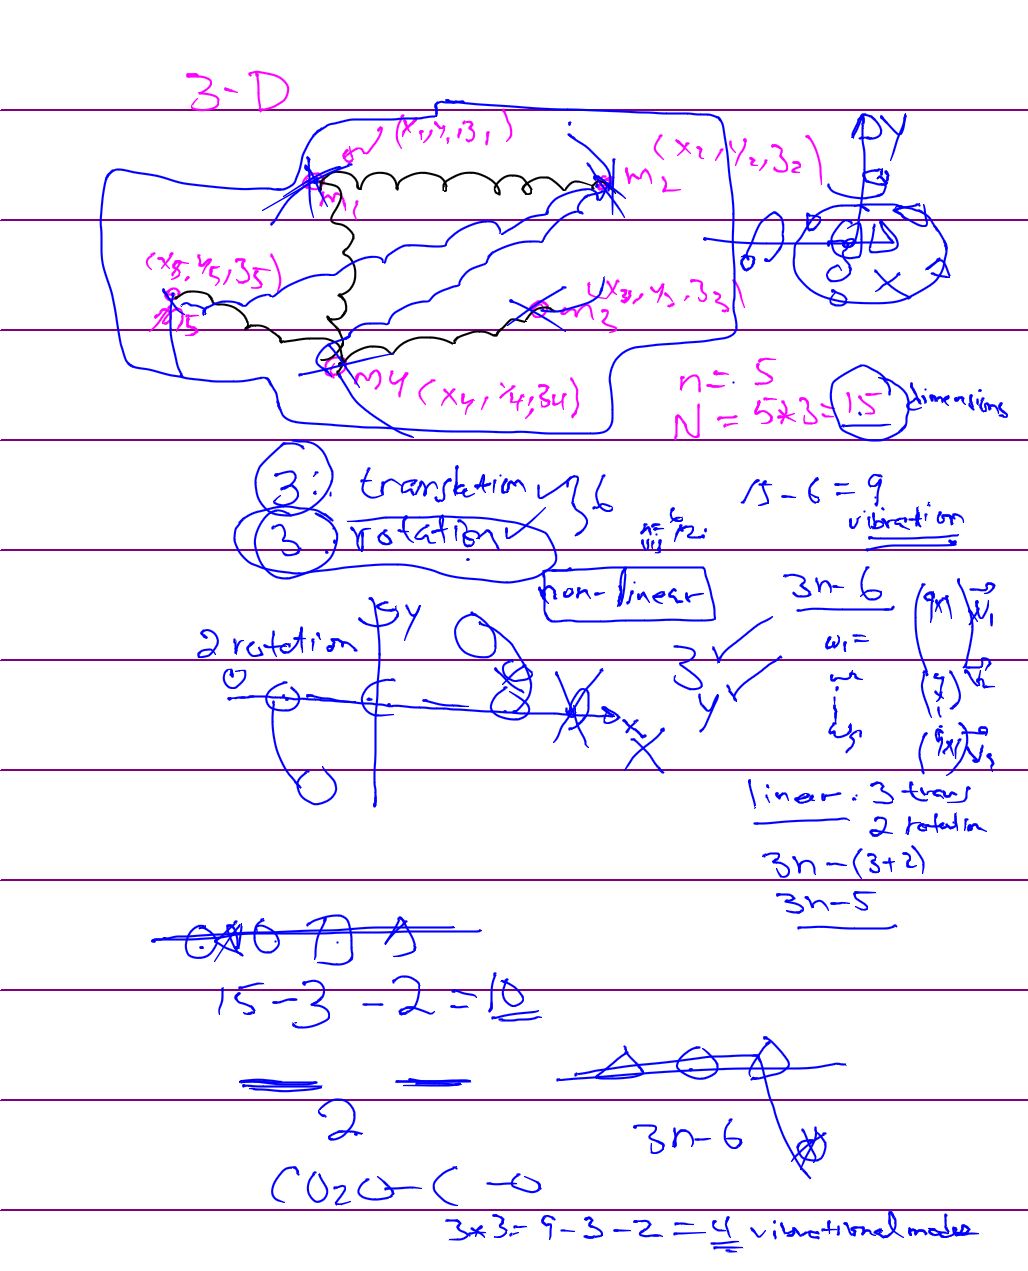 3-D
(x1, y1, z1)
m1
m2 (x2, y2, z2)
y
(x5, y5, z5)
m5
m3 (x3, y3, z3)
x
m4 (x4, y4, z4)
n = 5
N = 5*3 = 15 dimensions
3: translation } 6
3: rotation
15 - 6 = 9
vibration
non-linear
3n-6
2 rotation
y
x
z
y
ω1 =
(9x1) v1
linear: 3 trans
2 rotation
3n-(3+2)
3n-5
15-3-2=10
2
3n-6
CO2 O-C-O
3*3=9-3-2=4 vibrational modes